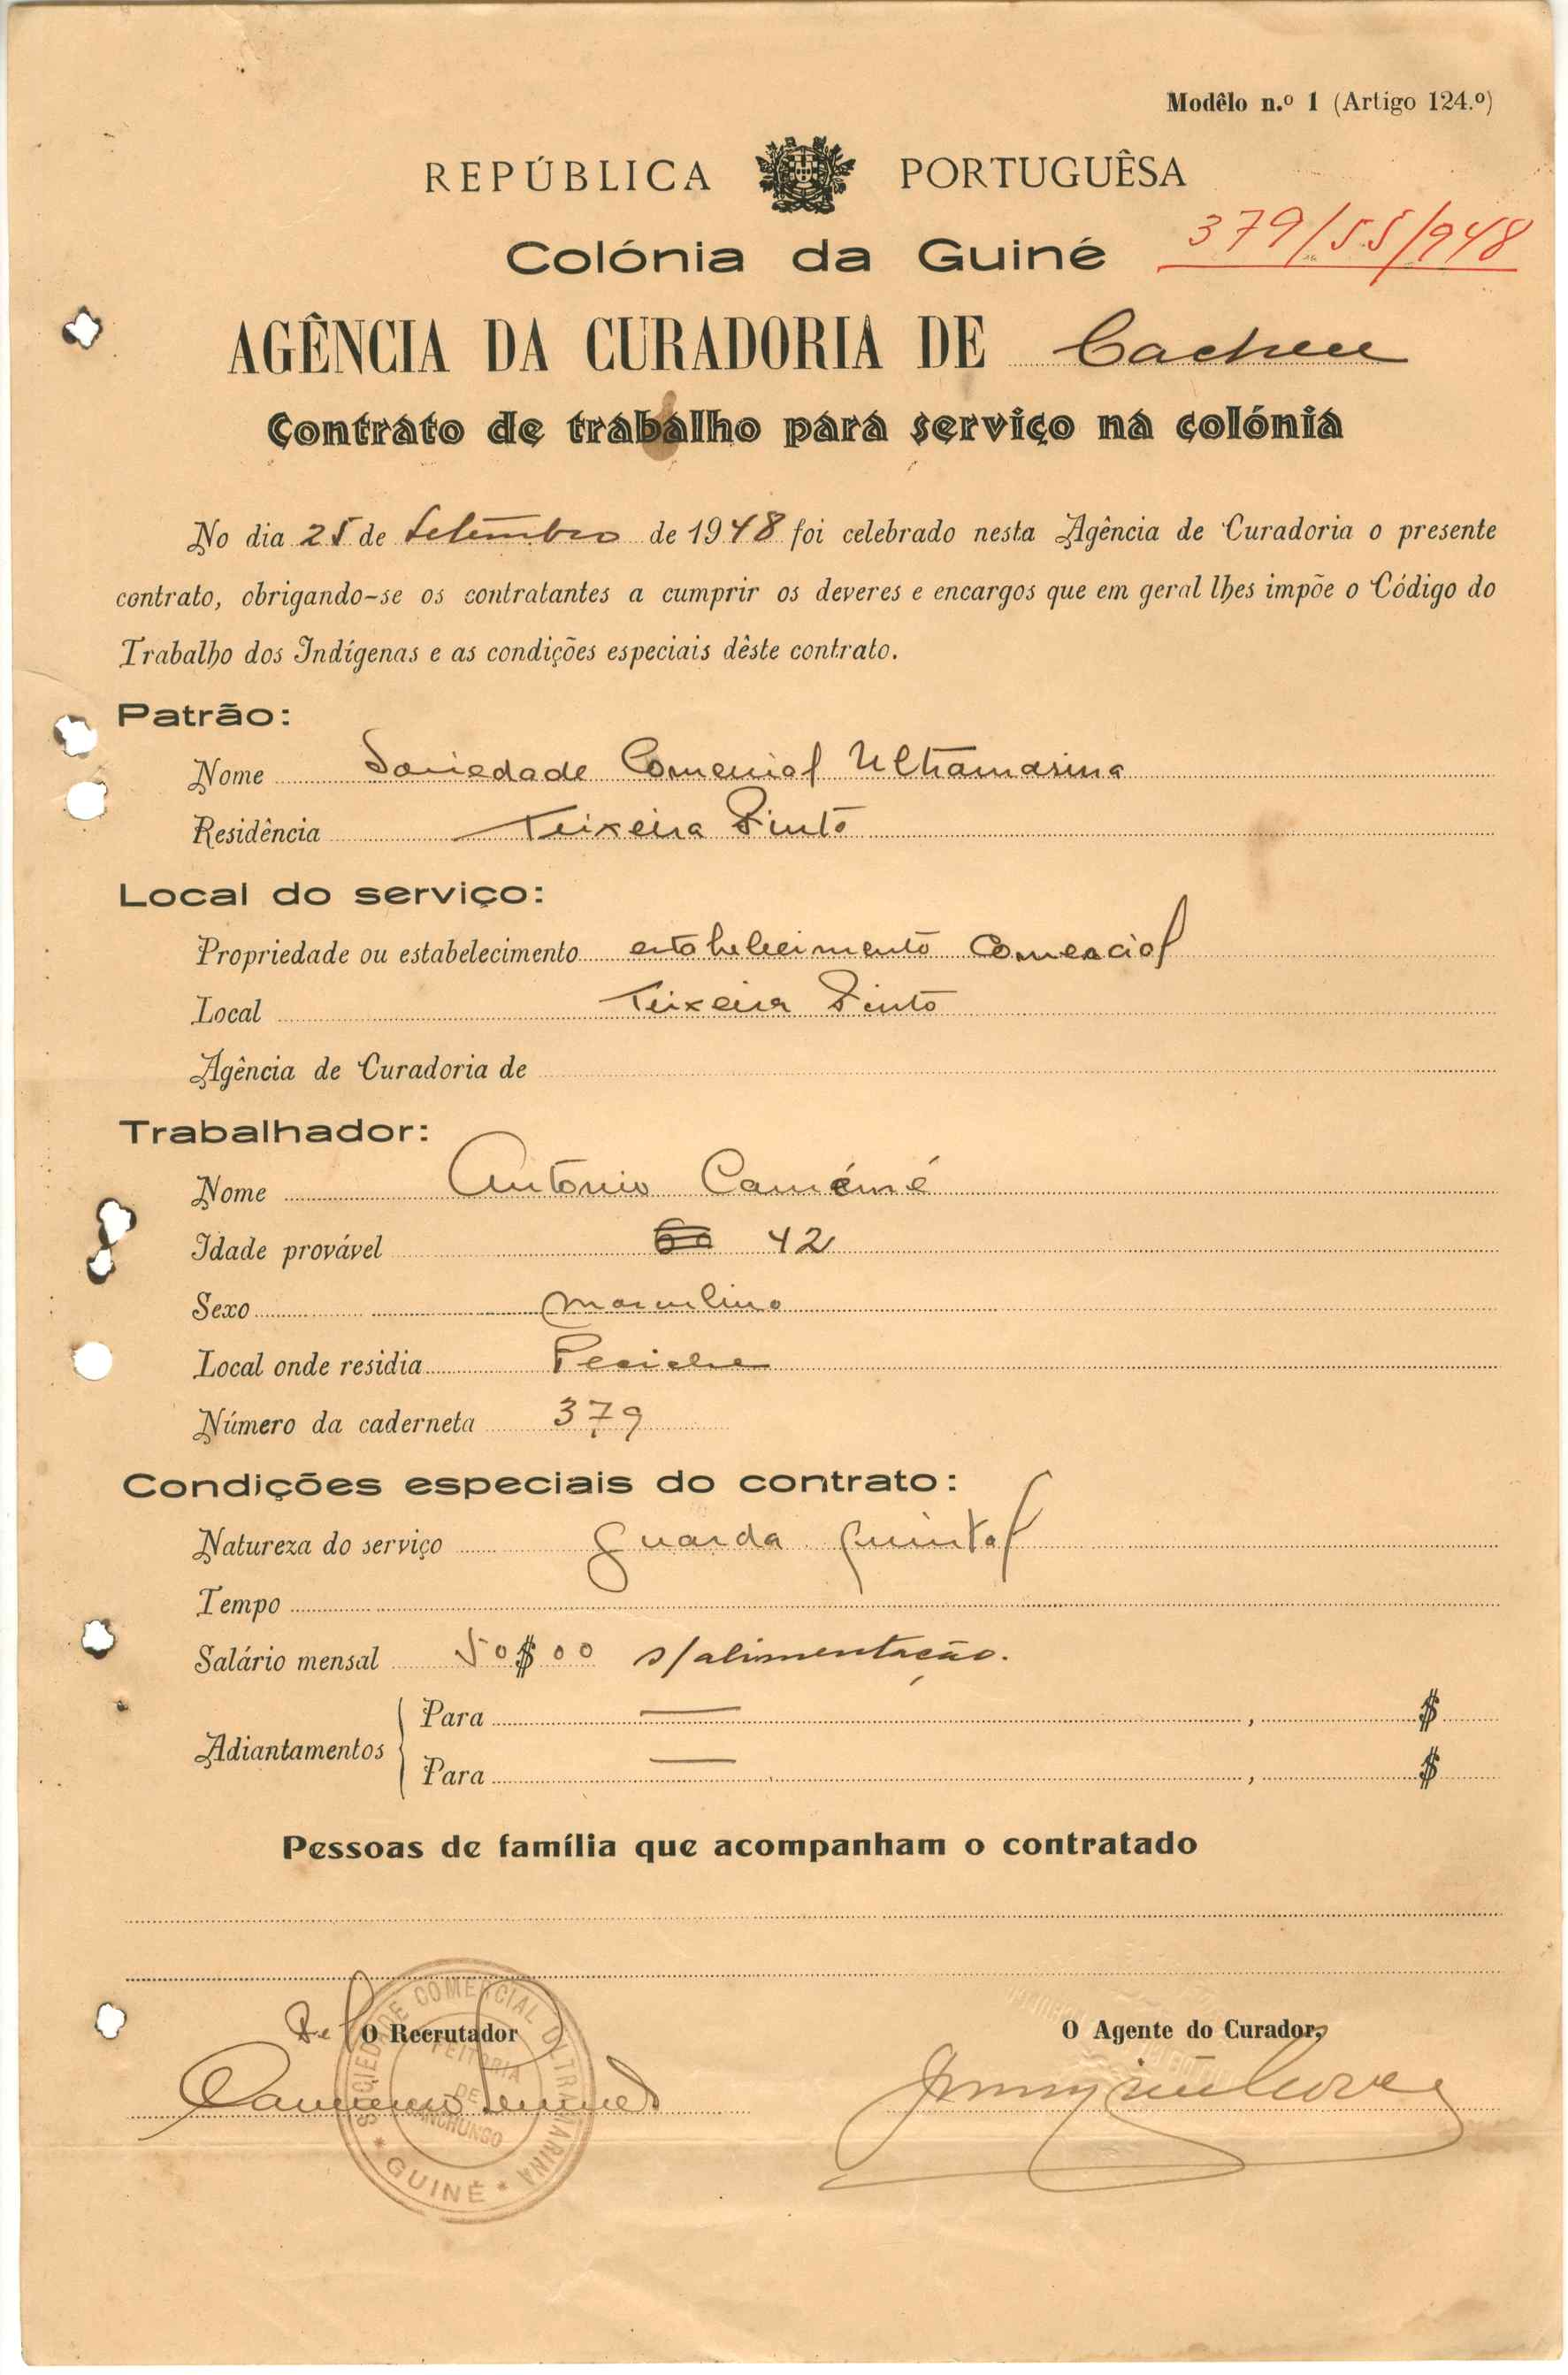 Modêlo n.º 1 (Artigo 124.º)
REPÚBLICA PORTUGUÊSA
Colónia da Guiné 379/55/948
AGÊNCIA DA CURADORIA DE Cacheu
Contrato de trabalho para serviço na colónia
No dia 25 de Setembro de 1948 foi celebrado nesta Agência de Curadoria o presente
contrato, obrigando-se os contratantes a cumprir os deveres e encargos que em geral lhes impõe o Código do
Trabalho dos Indígenas e as condições especiais dêste contrato.
Patrão:
Nome Sociedade Comercial Ultramarina
Residência Teixeira Pinto
Local do serviço:
Propriedade ou estabelecimento estabelecimento Comercial
Local Teixeira Pinto
Agência de Curadoria de
Trabalhador:
Nome António
Idade provável 60 42
Sexo masculino
Local onde residia Peciche
Número da caderneta 379
Condições especiais do contrato:
Natureza do serviço guarda quintal
Tempo
Salário mensal 50$00 s/alimentação.
Adiantamentos
Para — , $
Para — , $
Pessoas de família que acompanham o contratado
O Recrutador
O Agente do Curador,
SOCIEDADE COMERCIAL ULTRAMARINA
FEITORIA
DE
CANCHUNGO
* GUINÉ *